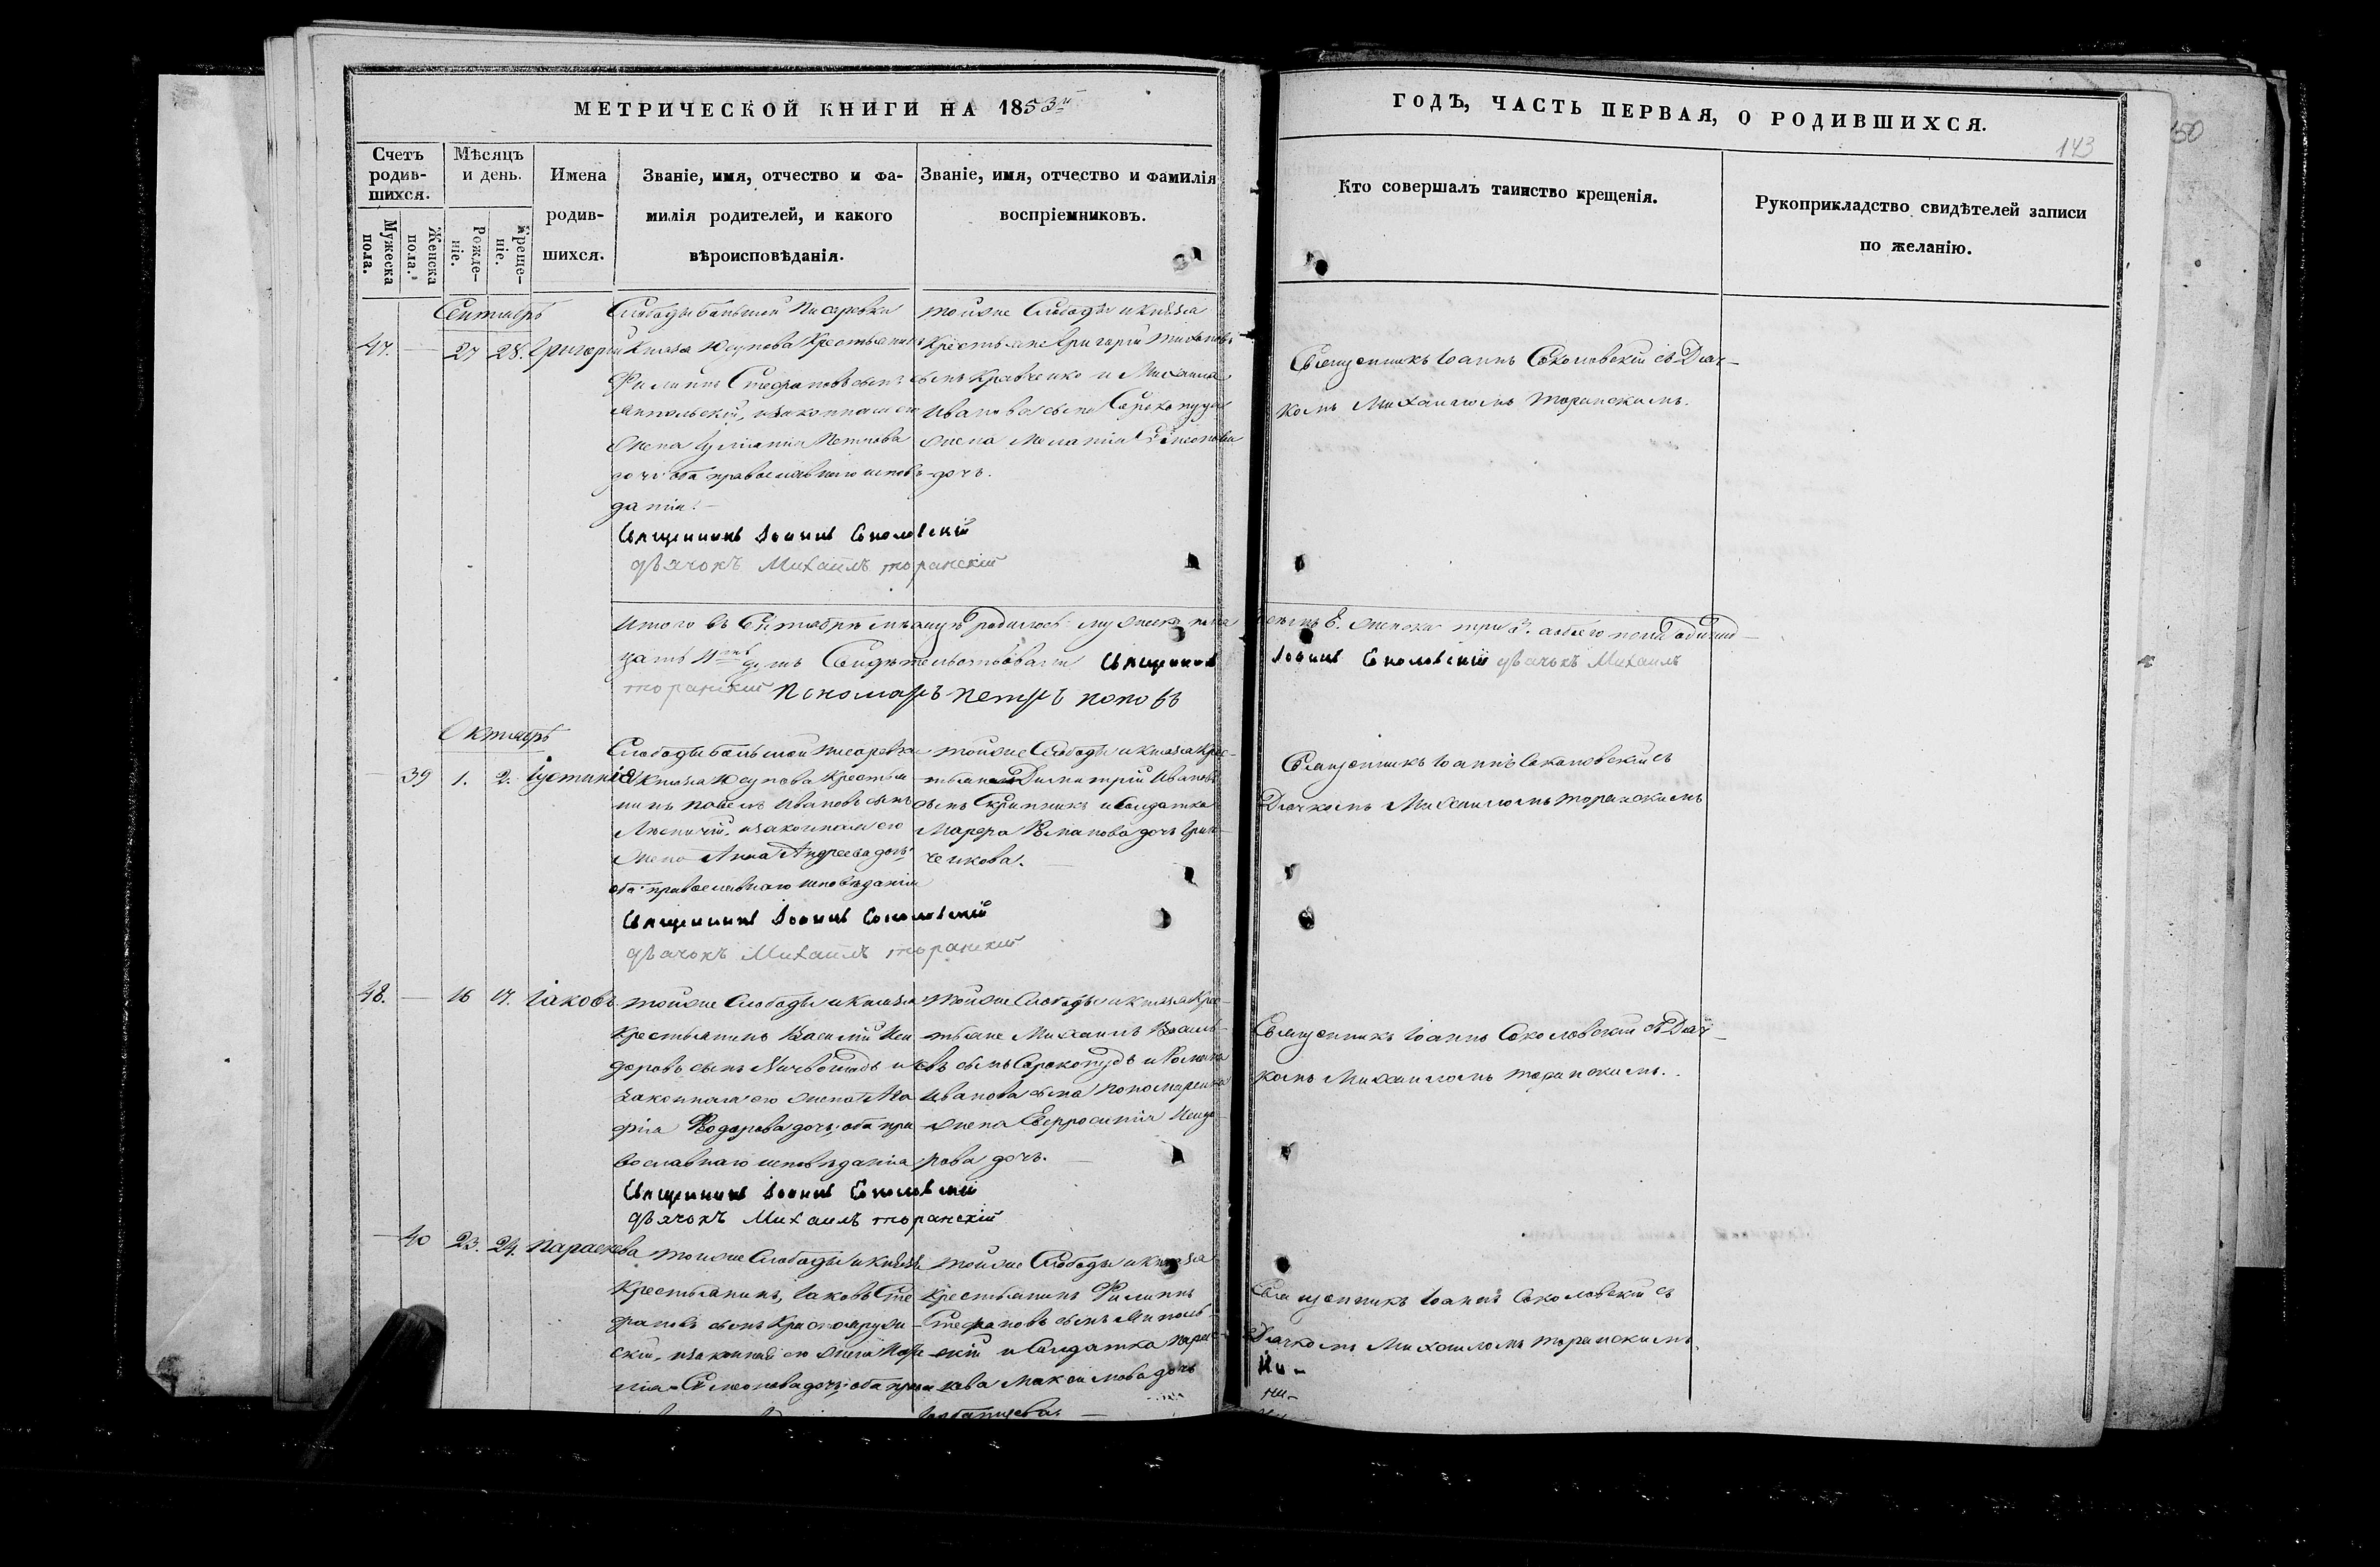 МЕТРИЧЕСКОЙ КНИГИ НА 1853й
Счетъ родив-шихся.
Мужеска пола.
Женска пола.
Мѣсяцъ и день.
Рожде-ніе.
Креще-ніе.
Имена
родив-
шихся.
Званіе, имя, отчество и фа-
милія родителей, и какого
вѣроисповѣданія.
Званіе, имя, отчество и фамилія
воспріемниковъ.
ГОДЪ, ЧАСТЬ ПЕРВАЯ, О РОДИВШИХСЯ.
143
50
Кто совершалъ таинство крещенія.
Рукоприкладство свидѣтелей записи
по желанію.
Сентябрь
47. — 27 28. Григорій
Слободы большой Писаревки
Князя Юсупова Крестьянинъ
Филиппъ Стефановъ сынъ
Мипольскій, и законная его
Жена Петрова
дочь оба православнаго исповѣ-
данія.
Священникъ Іоаннъ Соколовскій
дьячокъ Михаилъ торанскій
той же Слободы и князя
Крестьяне Григорій
сынъ Кравченко и Михаила
Иванова сына Сорокопуда
жена Мелатія Симеонова
дочь.
Священникъ Іоаннъ Соколовскій съ Дьяч-
комъ Михаиломъ Торанскимъ.
Итого въ Сентябрѣ мѣсяцѣ родилось: мужеска пола
женска три 3. а обоего пола одинад-
цать 11ть душъ Свидѣтельствовали Священникъ
Іоаннъ Соколовскій дьячокъ Михаилъ
торанскій Пономарь Петръ Поповъ
Октябрь
— 39 1. 2. Іустинія
Слободы большой писаревки
Князя Юсупова Крестья-
нинъ Павелъ Ивановъ сынъ
и законная его
жена Анна Андреева дочь
оба православнаго исповѣданія
Священникъ Іоаннъ Соколовскій
дьячокъ Михаилъ торанскій
той же Слободы и князя Крес-
тьянинъ Димитрій Ивановъ
сынъ Скрипникъ и Солдатка
Марѳа Романова дочь Грин-
ченкова.
Священникъ Іоаннъ Соколовскій съ
Дьячкомъ Михаиломъ торанскимъ
48. — 16 17. Іаковъ
той же Слободы и князя
Крестьянинъ Василій Иси-
доровъ сынъ и
законная его жена Ма-
Ѳодорова дочь, оба пра-
вославнаго исповѣданія
Священникъ Іоаннъ Соколовскій
дьячокъ Михаилъ торанскій
той же Слободы и князя Крес-
тьяне Михаилъ Василь-
евъ сынъ Сорокопудъ и Романа
Иванова сына Пономаренка
жена Евфросинія Исидо-
рова дочь.
Священникъ Іоаннъ Соколовскій съ Дьяч-
комъ Михаиломъ торанскимъ.
— 40 23. 24. Параскева
той же Слободы и князя
Крестьянинъ, Іаковъ Сте-
фановъ сынъ Краснояружи-
скій, и законная его жена Мар-
Симеонова дочь; оба пра-
той же Слободы и князя
Крестьянинъ Филиппъ
Стефановъ сынъ Миполь-
скій и Солдатка Парас-
кева Максимова дочь
Священникъ Іоаннъ Соколовскій съ
Дьячкомъ Михаиломъ торанскимъ.